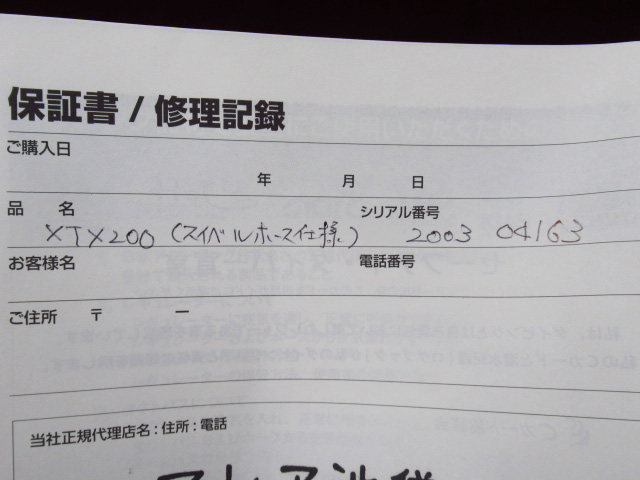 保証書 / 修理記録
ご購入日
年 月 日
品 名 シリアル番号
XTX200 (スイベルホース仕様) 2003 04163
お客様名 電話番号
ご住所 〒 ー
当社正規代理店名：住所：電話